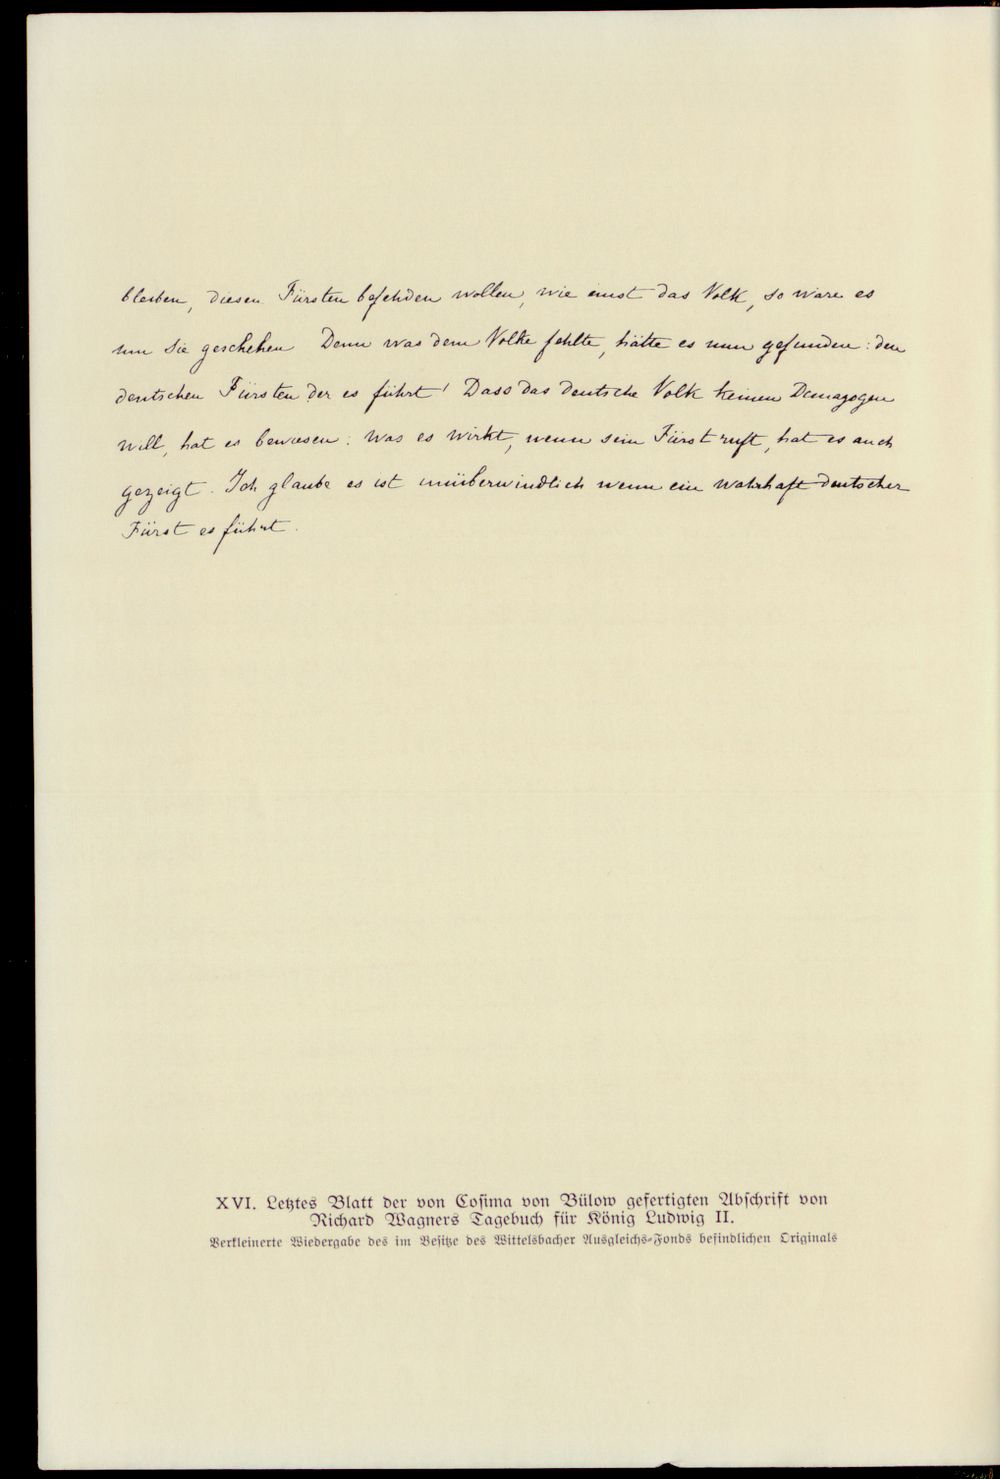 bleiben, diesen Fürsten befehden wollen, wie einst das Volk, so wäre es
um Sie geschehen Denn was dem Volke fehlte, hätte es nun gefunden: den
deutschen Fürsten der es führt! Dass das deutsche Volk keinen Demagogen
will, hat es bewiesen: was es wirkt, wenn sein Fürst ruft, hat es auch
gezeigt. Ich glaube es ist unüberwindlich wenn ein wahrhaft deutscher
Fürst es führt.
XVI. Letztes Blatt der von Cosima von Bülow gefertigten Abschrift von
Richard Wagners Tagebuch für König Ludwig II.
Verkleinerte Wiedergabe des im Besitze des Wittelsbacher Ausgleichs-Fonds befindlichen Originals